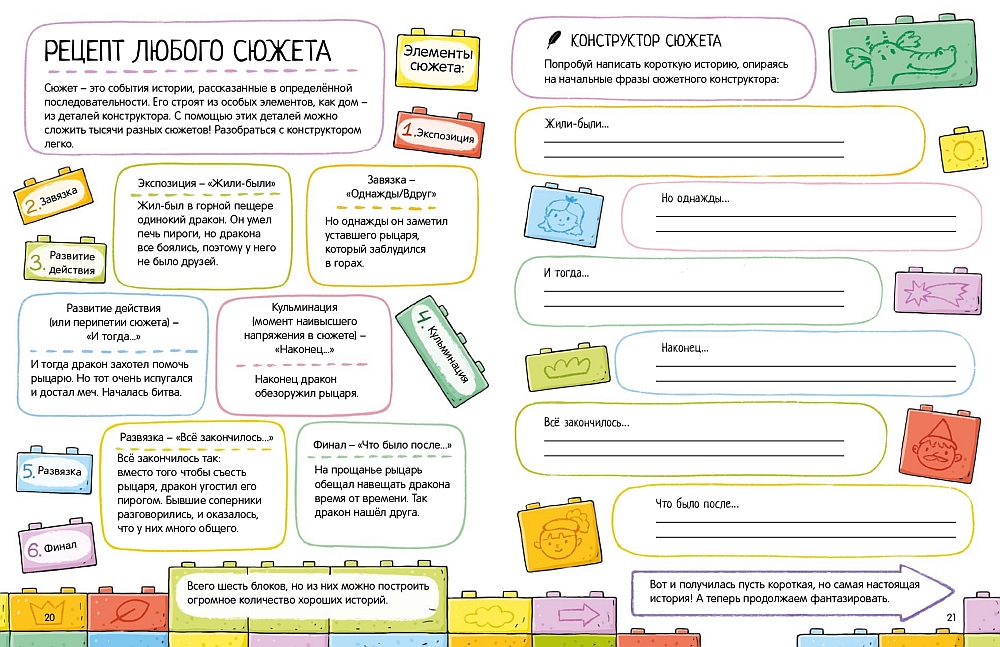 РЕЦЕПТ ЛЮБОГО СЮЖЕТА
Сюжет – это события истории, рассказанные в определённой
последовательности. Его строят из особых элементов, как дом –
из деталей конструктора. С помощью этих деталей можно
сложить тысячи разных сюжетов! Разобраться с конструктором
легко.
Элементы
сюжета:
1. Экспозиция
2. Завязка
3. Развитие
действия
Экспозиция – «Жили-были»
Жил-был в горной пещере
одинокий дракон. Он умел
печь пироги, но дракона
все боялись, поэтому у него
не было друзей.
Завязка –
«Однажды/Вдруг»
Но однажды он заметил
уставшего рыцаря,
который заблудился
в горах.
Развитие действия
(или перипетии сюжета) –
«И тогда...»
И тогда дракон захотел помочь
рыцарю. Но тот очень испугался
и достал меч. Началась битва.
Кульминация
(момент наивысшего
напряжения в сюжете) –
«Наконец...»
Наконец дракон
обезоружил рыцаря.
4. Кульминация
5. Развязка
6. Финал
Развязка – «Всё закончилось...»
Всё закончилось так:
вместо того чтобы съесть
рыцаря, дракон угостил его
пирогом. Бывшие соперники
разговорились, и оказалось,
что у них много общего.
Финал – «Что было после...»
На прощанье рыцарь
обещал навещать дракона
время от времени. Так
дракон нашёл друга.
Всего шесть блоков, но из них можно построить
огромное количество хороших историй.
20
КОНСТРУКТОР СЮЖЕТА
Попробуй написать короткую историю, опираясь
на начальные фразы сюжетного конструктора:
Жили-были...
Но однажды...
И тогда...
Наконец...
Всё закончилось...
Что было после...
Вот и получилась пусть короткая, но самая настоящая
история! А теперь продолжаем фантазировать.
21